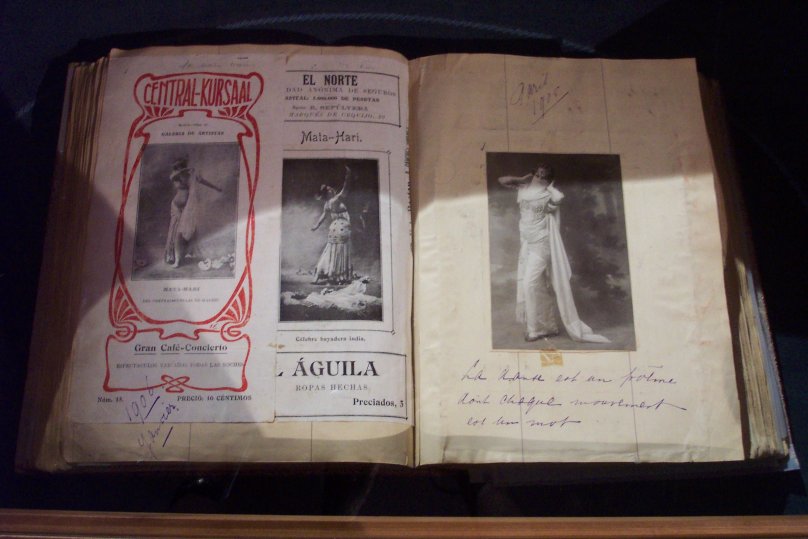 CENTRAL-KURSAAL
GALERIA DE ARTISTAS
MATA-HARI
Gran Café-Concierto
ESPECTÁCULOS VARIADOS TODAS LAS NOCHES
Núm. 18. PRECIO: 10 CÉNTIMOS
1906
janvier
EL NORTE
DAD ANÓNIMA DE SEGUROS
APITAL: 5.000.000 DE PESETAS
R. SEPÚLVEDA
MARQUÉS DE CUBAS
Mata-Hari.
Célebre bayadera india.
L ÁGUILA
ROPAS HECHAS.
Preciados, 3
Paris
1905
La danse est un poème
dont chaque mouvement
est un mot